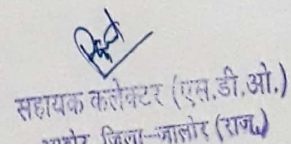 सहायक कलेक्टर (एस.डी.ओ.)
आहोर जिला-जालोर (राज.)